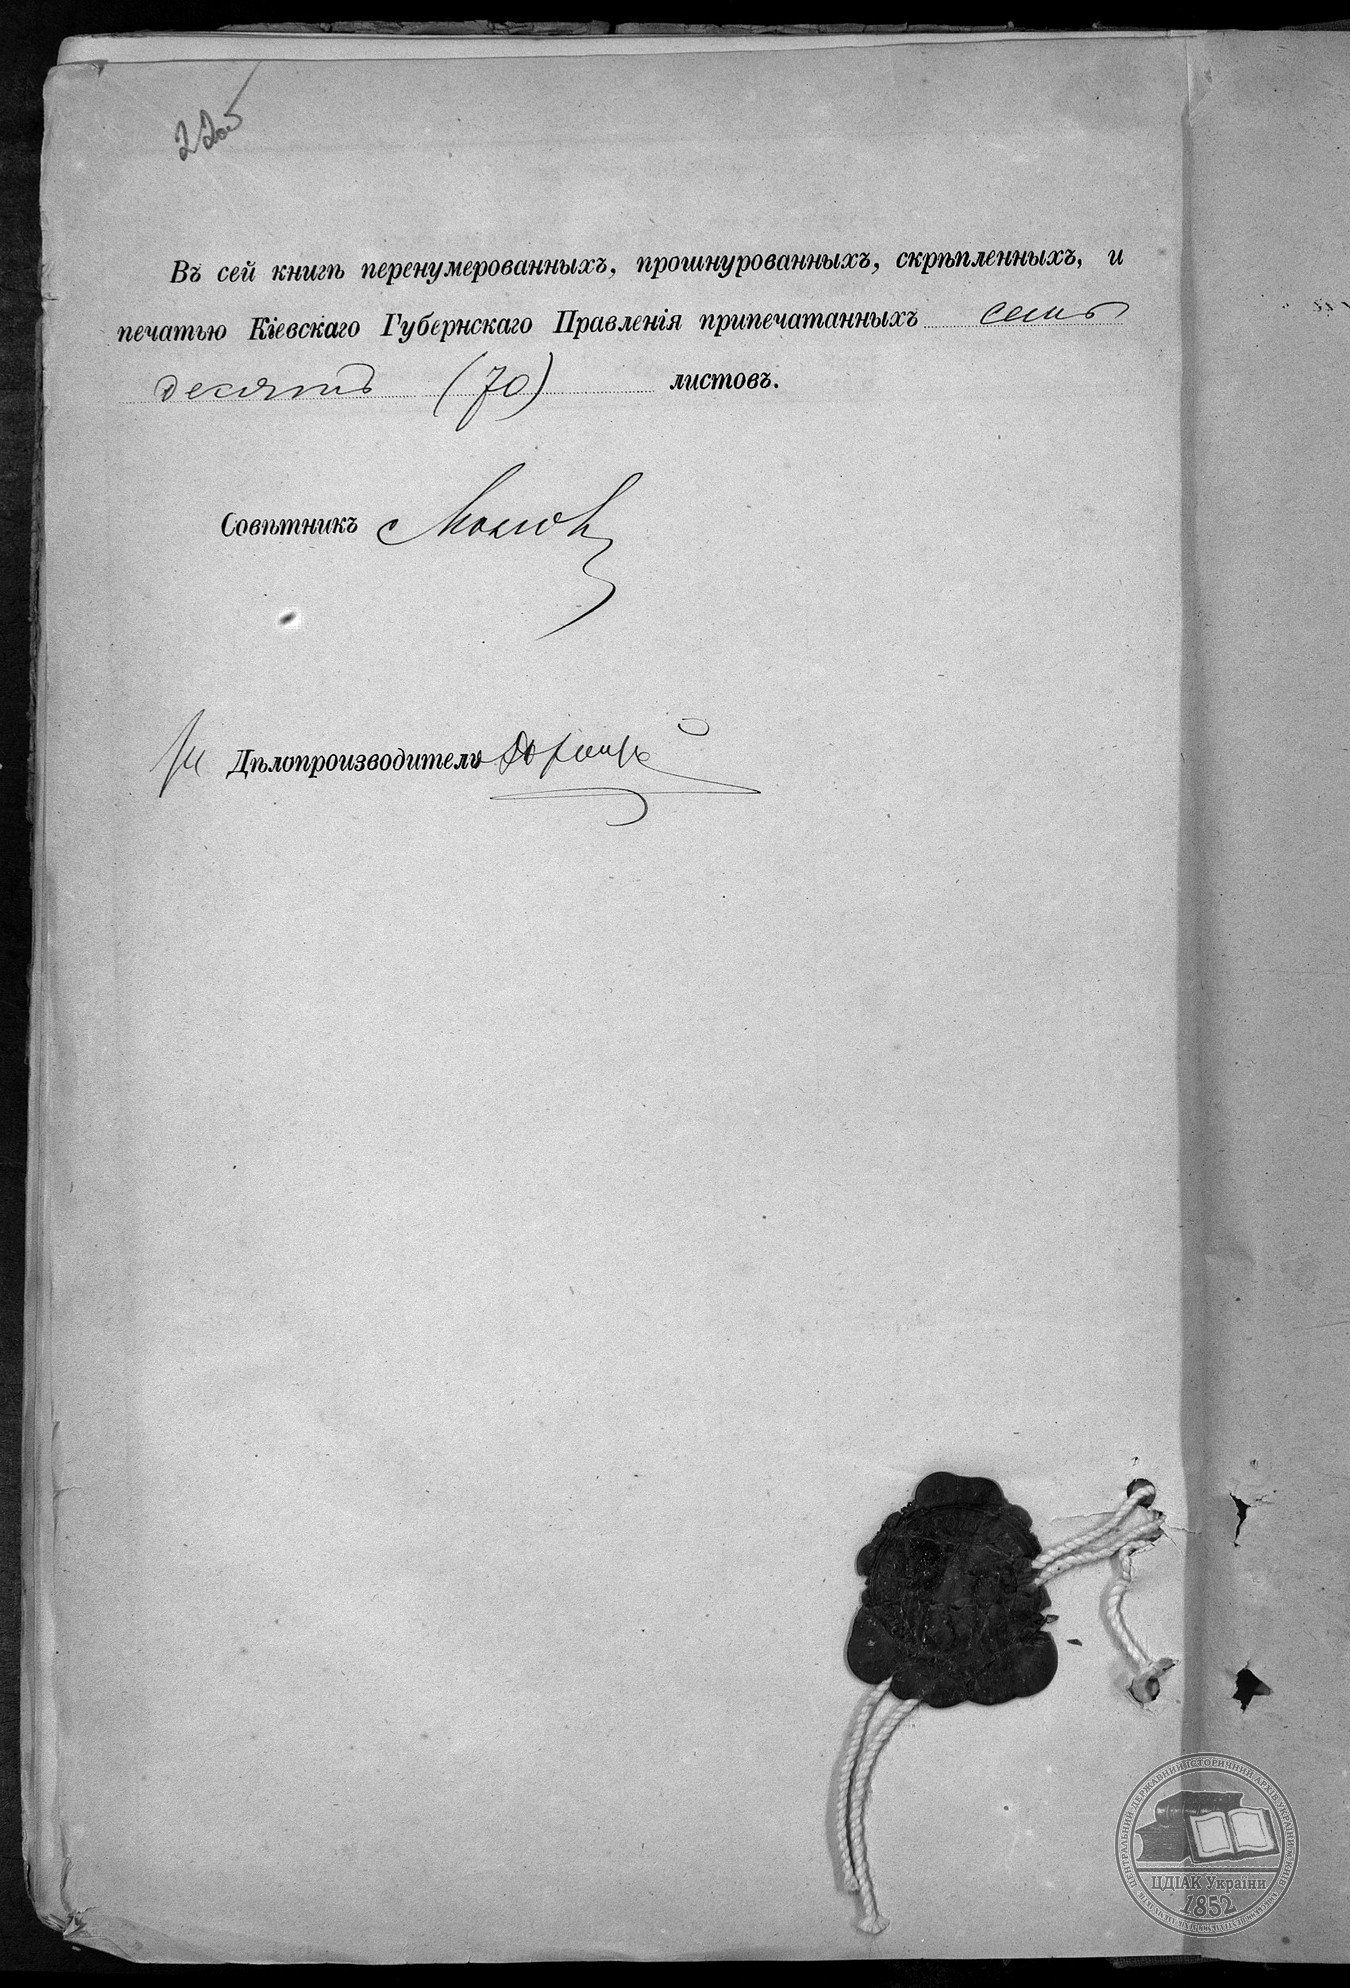 Въ сей книгѣ перенумерованныхъ, прошнурованныхъ, скрѣпленныхъ, и
печатью Кіевскаго Губернскаго Правленія припечатанныхъ семь
десятъ (70) листовъ.
Совѣтникъ
Дѣлопроизводитель
ЦЕНТРАЛЬНИЙ ДЕРЖАВНИЙ ІСТОРИЧНИЙ АРХІВ УКРАЇНИ
ЦДІАК України
1852